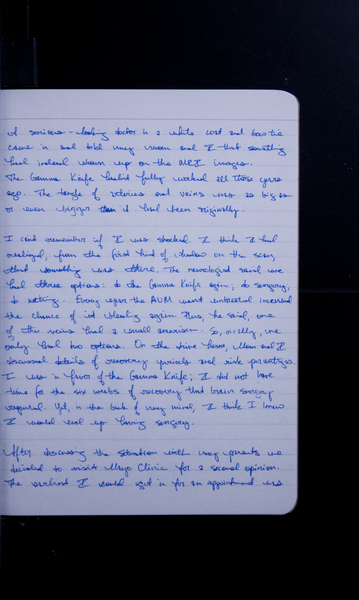 A serious-looking doctor in a white coat and bow tie
came in and told my mom and I that something
had indeed shown up on the MRI images.
The Gamma Knife hadn't fully worked all those years
ago. The tangle of arteries and veins was as big as
or even bigger than it had been originally.
I can't remember if I was shocked. I think I had
realized, from the first hint of shadow on the scan,
that something was there. The neurologist said we
had three options: do the Gamma Knife again; do surgery;
do nothing. Every year the AVM went untreated increased
the chance of it bleeding again. Plus, he said, one
of the veins had a small aneurism. So, really, we
only had two options. On the drive home, Mom and I
discussed details of recovery periods and risk percentages.
I was in favor of the Gamma Knife; I did not have
time for the six weeks of recovery that brain surgery
required. Yet, in the back of my mind, I think I knew
I would end up having surgery.
After discussing the situation with my parents we
decided to visit Mayo Clinic for a second opinion.
The earliest I could get in for an appointment was